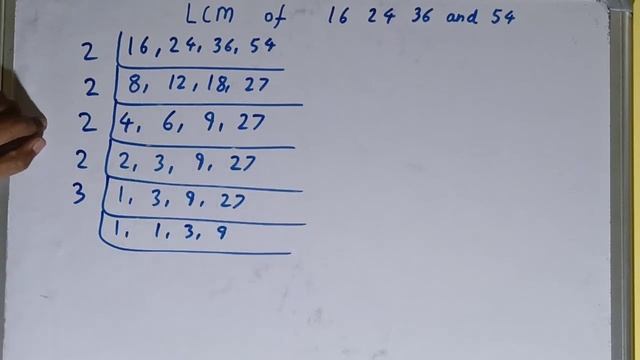 LCM of 16 24 36 and 54
2 16, 24, 36, 54
2 8, 12, 18, 27
2 4, 6, 9, 27
2 2, 3, 9, 27
3 1, 3, 9, 27
1, 1, 3, 9